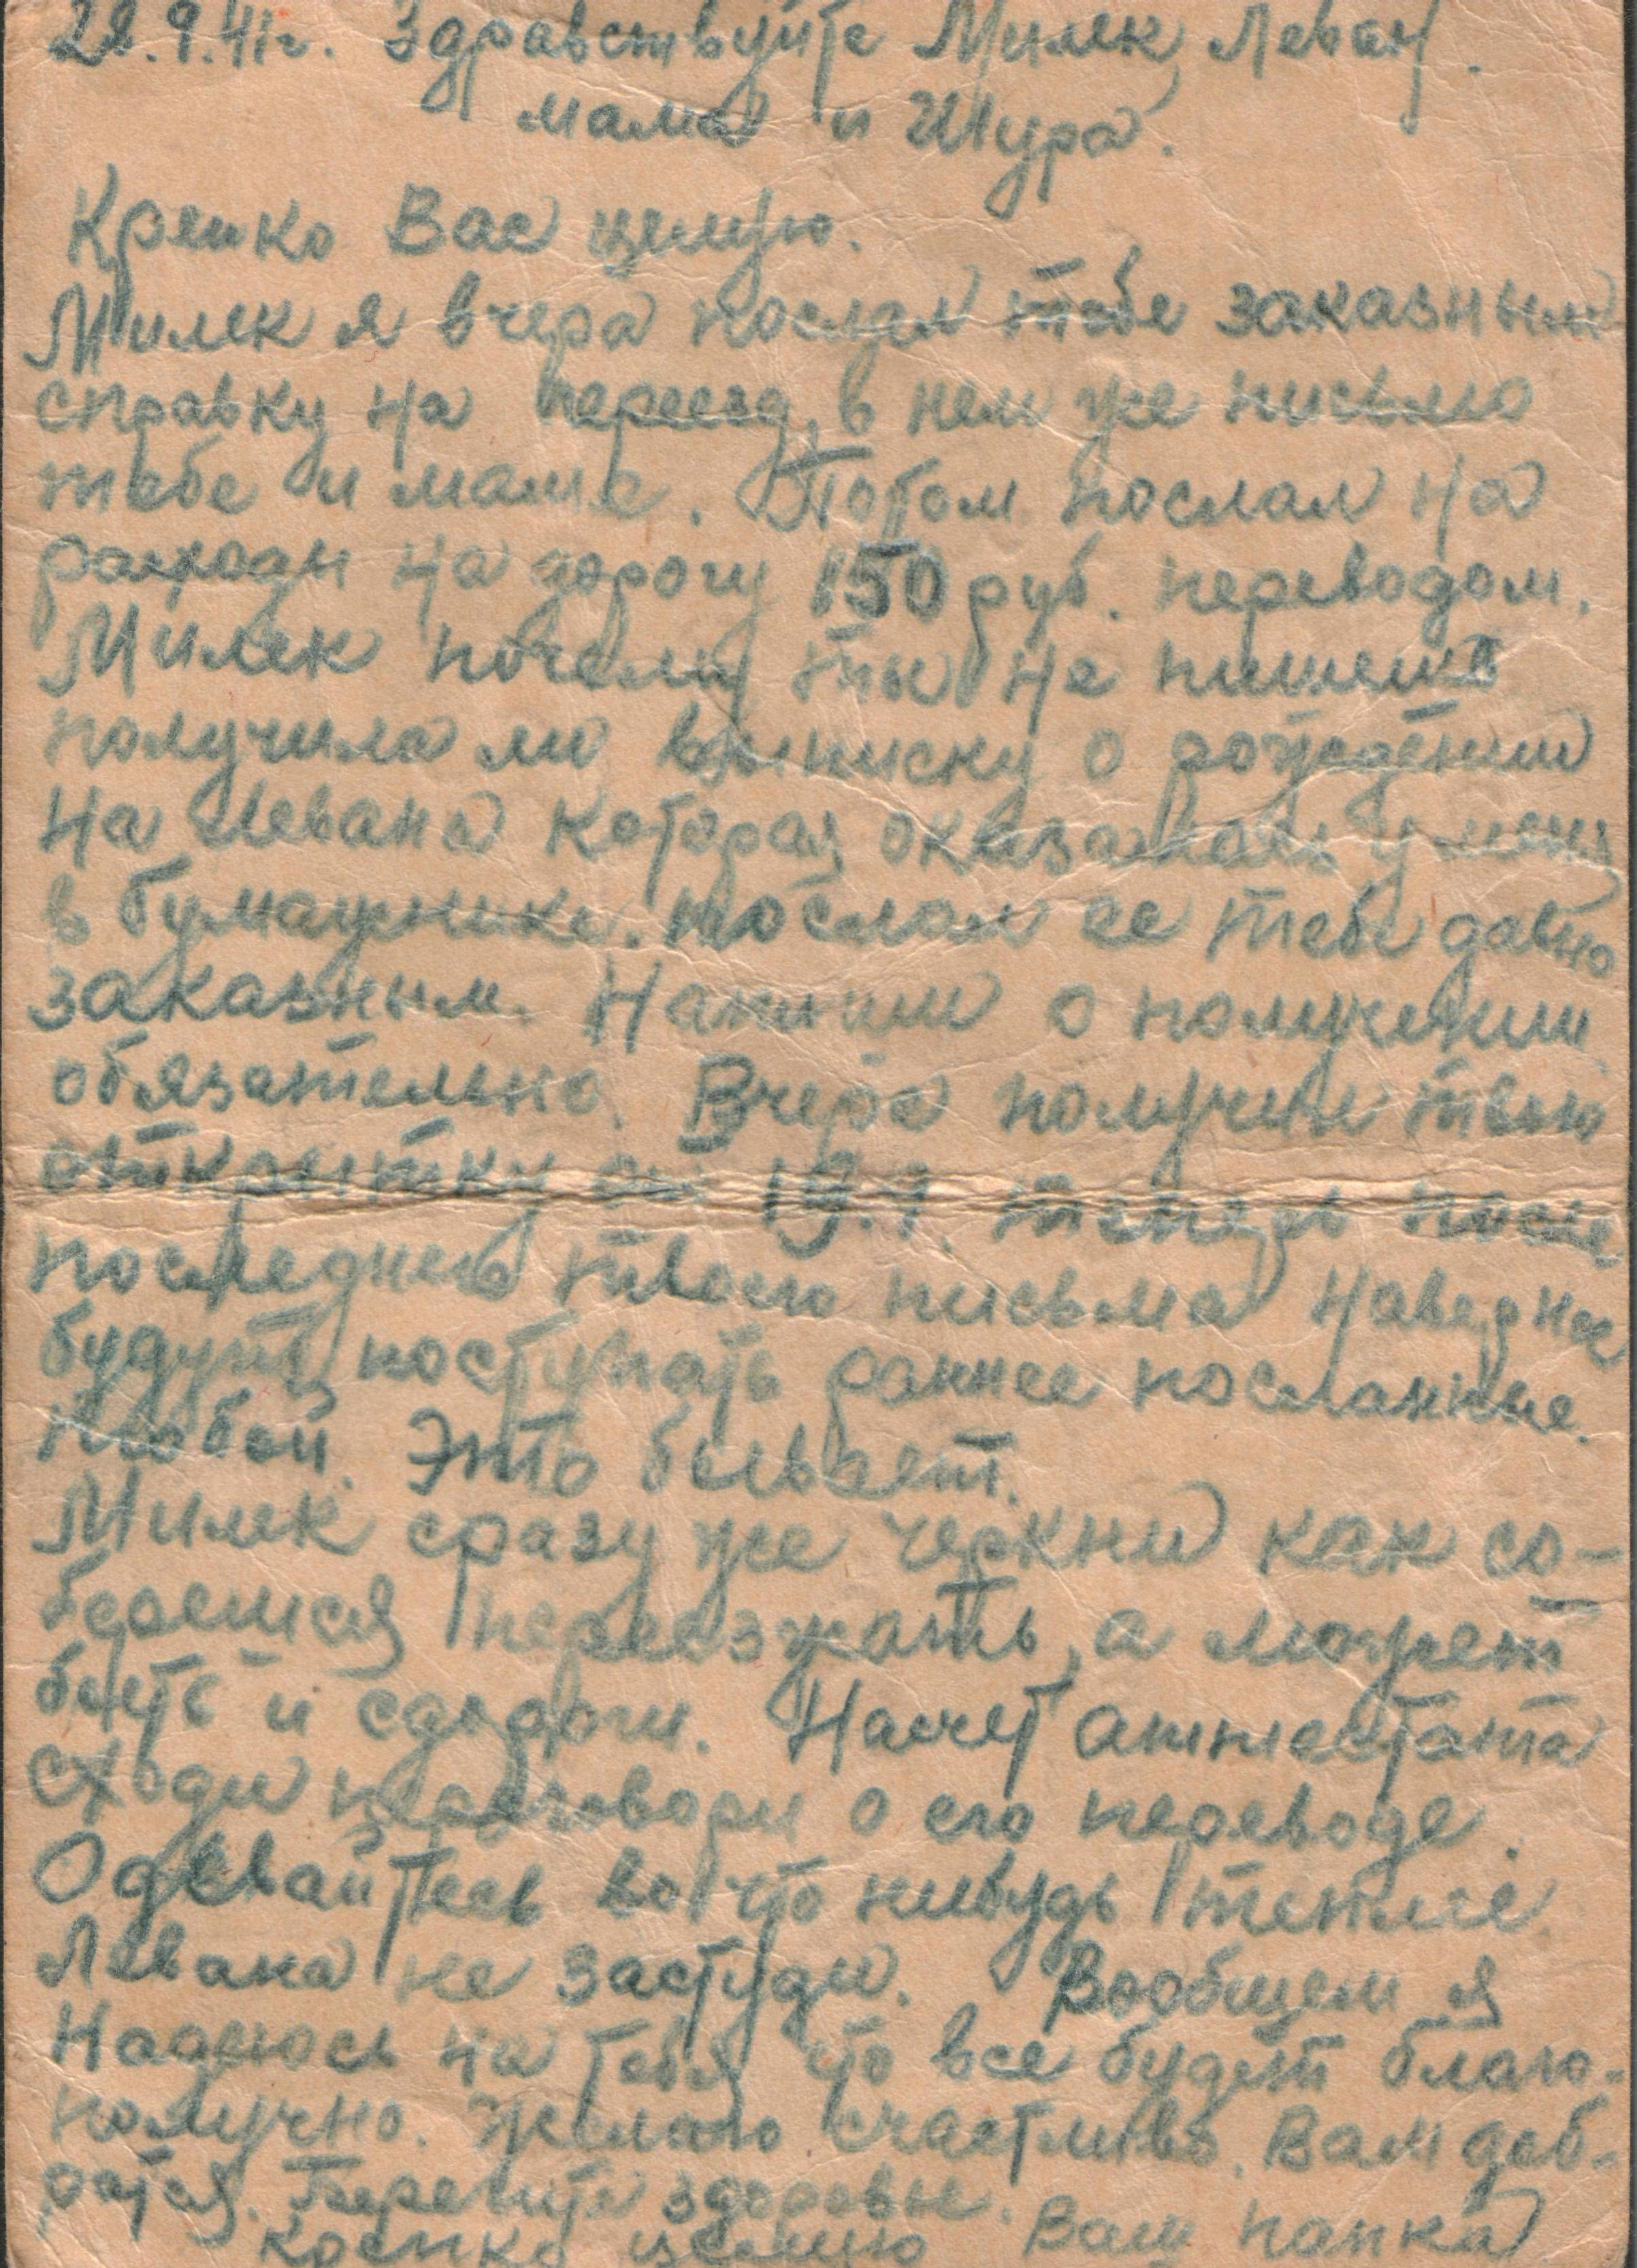 28.9.41г. Здравствуйте Милек, Леван
мама и Шура.
Крепко Вас целую.
Милек я вчера послал тебе заказным
справку на переезд, в нем же письмо
тебе и маме. Потом послал на
расходы на дорогу 150 руб. переводом.
Милек почему ты не пишешь
получила ли выписку о рождении
на Левана которая оказалась у меня
в бумажнике. послал ее тебе давно
заказным. Напиши о получении
обязательно. Вчера получил твою
открытку от 19.9. теперь после
последнего твоего письма наверное
будут поступать раннее посланные
тобой. Это бывает.
Милек сразу же черкни как со-
берешся переезжать, а может
быть и с дороги. Насчет аттестата
сходи переговори о его переводе.
Одевайтесь во что нибудь теплее.
Левана не застуди. Вообщем я
надеюсь на тебя что все будет благо-
получно. Желаю счастливо Вам доб-
ратся. Берегите здоровье.
Крепко целую Ваш папка